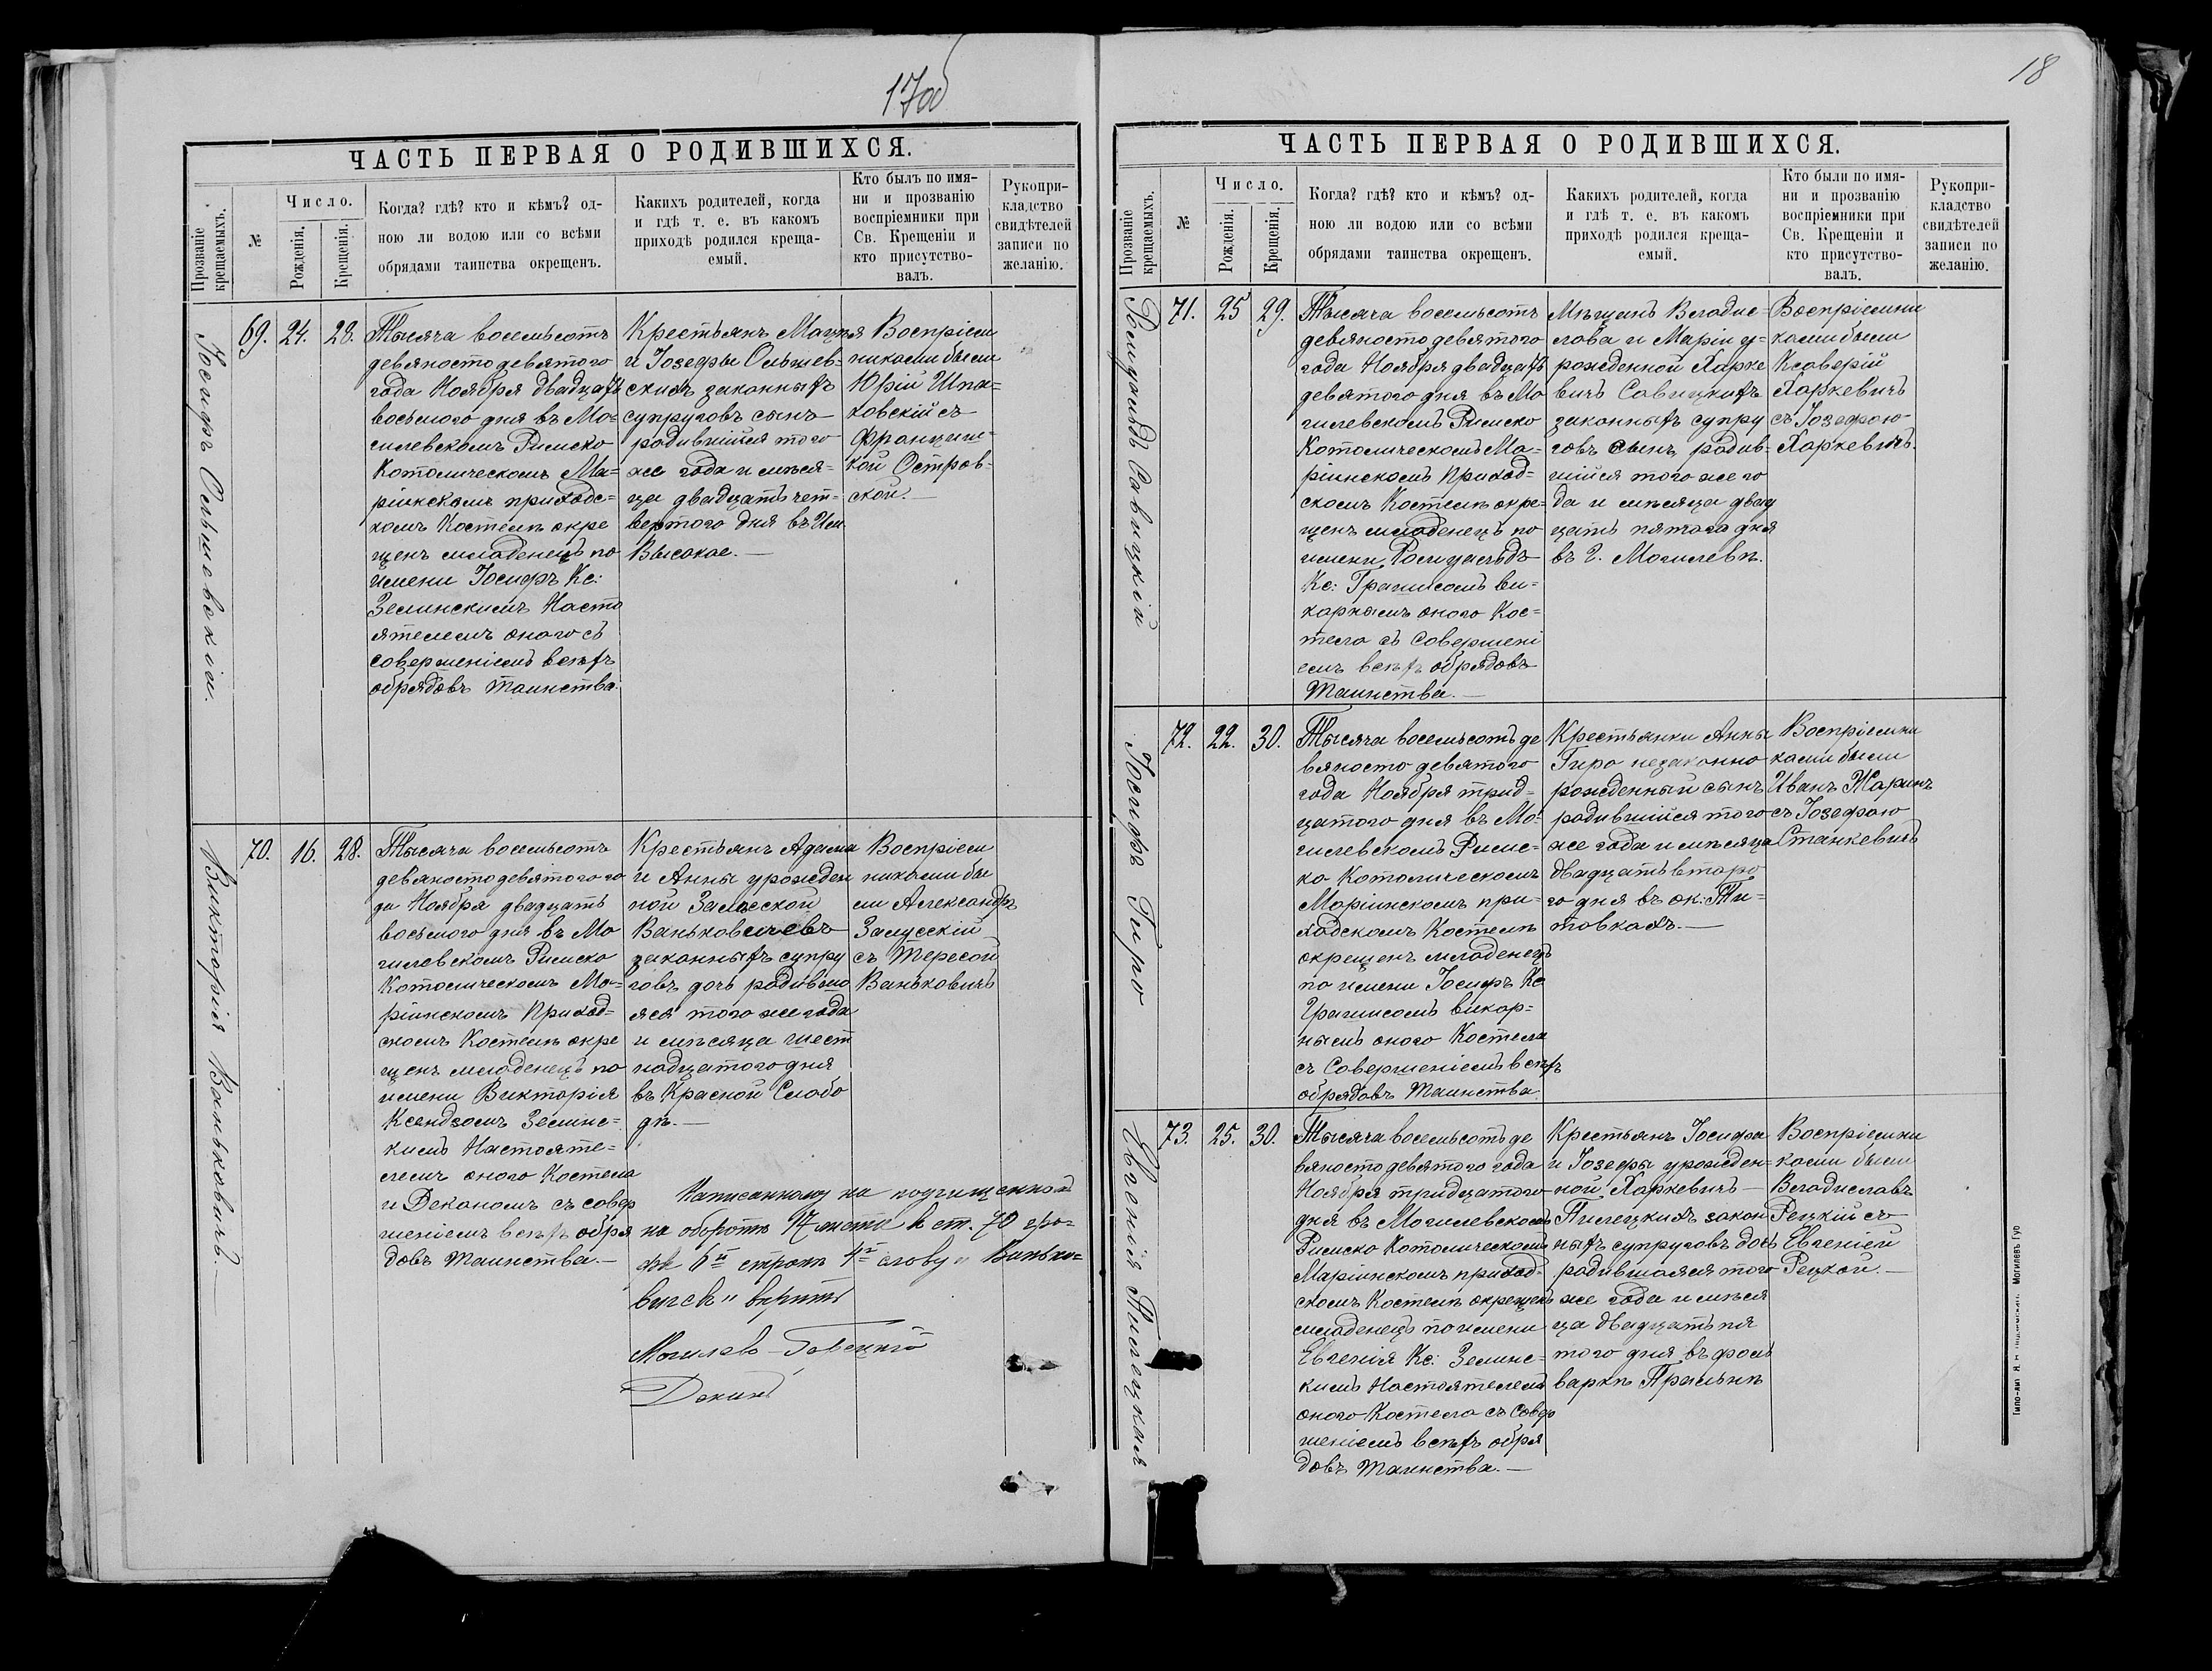 17об
ЧАСТЬ ПЕРВАЯ О РОДИВШИХСЯ.
Прозваніе крещаемыхъ.
№
Число.
Рожденія.
Крещенія.
Когда? гдѣ? кто и кѣмъ? од-
ною ли водою или со всѣми
обрядами таинства окрещенъ.
Какихъ родителей, когда
и гдѣ т. е. въ какомъ
приходѣ родился креща-
емый.
Кто былъ по имя-
ни и прозванію
воспріемники при
Св. Крещеніи и
кто присутство-
валъ.
Рукопри-
кладство
свидѣтелей
записи по
желанію.
Іосифъ Ольшевскій.
69. 24. 28.
Тысяча восемьсотъ
девяносто девятого
года Ноября двадцать
восьмого дня въ Мо-
гилевскомъ Римско
Католическомъ Ма-
ріинскомъ приходс-
комъ Костелѣ окре
щенъ младенецъ по
имени Іосифъ Кс:
Зелинскимъ Насто
ятелемъ оного съ
совершеніемъ всѣхъ
обрядовъ таинства.
Крестьянъ Мацѣя
и Іозефы Ольшев-
скихъ законныхъ
супруговъ сынъ
родившійся того
же года и мѣся-
ца двадцать чет-
вертого дня въ Им.
Высокое.
Воспріем
никами были
Юрій Шпа-
ковскій съ
Францеш-
кой Остров-
ской.
Викторія Ваньковичъ.
70. 16. 28.
Тысяча восемьсотъ
девяносто девятого го
да Ноября двадцать
восьмого дня въ Мо
гилевскомъ Римско
Католическомъ Ма-
ріинскомъ Приход-
скомъ Костелѣ окре
щенъ младенецъ по
имени Викторія
Ксендзомъ Зелинс-
кимъ Настояте-
лемъ оного Костела
и Деканомъ съ совер
шеніемъ всѣхъ обря
довъ Таинства.
Крестьянъ Адама
и Анны урожден
ной Залеской
Ваньковичевъ
законныхъ супру
говъ дочь родивша
яся того же года
и мѣсяца шест
надцатого дня
въ Красной Слобо
дѣ.
Воспріем
никами бы
ли Александръ
Залусскій
съ Тересой
Ваньковичъ
Написанному на подчищенной
на оборотѣ 17 листа к ст. 70 гра-
фѣ 6й строкѣ 4й слову "Ванько-
вичевъ" вѣрить
Могилево-
Деканъ
18
ЧАСТЬ ПЕРВАЯ О РОДИВШИХСЯ.
Прозваніе крещаемыхъ.
№
Число.
Рожденія.
Крещенія.
Когда? гдѣ? кто и кѣмъ? од-
ною ли водою или со всѣми
обрядами таинства окрещенъ.
Какихъ родителей, когда
и гдѣ т. е. въ какомъ
приходѣ родился креща-
емый.
Кто были по имя-
ни и прозванію
воспріемники при
Св. Крещеніи и
кто присутство-
валъ.
Рукопри-
кладство
свидѣтелей
записи по
желанію.
Ромуальдъ Савицкій
71. 25 29.
Тысяча восемьсотъ
девяносто девятого
года Ноября двадцать
девятого дня въ Мо
гилевскомъ Римско
Католическомъ Ма-
ріинскомъ Приход-
скомъ Костелѣ окре-
щенъ младенецъ по
имени Ромуальдъ
Кс: Грашисомъ ви-
карнымъ оного Кос-
тела съ Совершені
емъ всѣхъ обрядовъ
Таинства.
Мѣщанъ Владис-
лава и Маріи у-
рожденной Харке
вичъ Савицкихъ
законныхъ супру
говъ сынъ родив-
шійся того же го
да и мѣсяца двад
цать пятаго дня
въ г. Могилевѣ.
Воспріемни
ками были
Ксаверій
Харкевичъ
съ Іозефою
Харкевичъ.
Іосифъ Гиро
72. 22. 30.
Тысяча восемьсотъ де
вяносто девятого
года Ноября трид-
цатого дня въ Мо-
гилевскомъ Римс-
ко Католическомъ
Маріинскомъ при-
ходскомъ Костелѣ
окрещенъ младенецъ
по имени Іосифъ Кс
Грашисомъ викар-
нымъ оного Костела
съ Совершеніемъ всѣхъ
обрядовъ Таинства
Крестьянки Анны
Гиро незаконно
рожденный сынъ
родившійся того
же года и мѣсяца
двадцать второ
го дня въ ок: Ти-
товкахъ.
Воспріемни
ками были
Иванъ Жаринъ
съ Іозефою
Станкевичъ
Евгенія Пилецкая
73. 25. 30.
Тысяча восемьсотъ де
вяносто девятого года
Ноября тридцатого
дня въ Могилевскомъ
Римско Католическомъ
Маріинскомъ приход-
скомъ Костелѣ окрещенъ
младенецъ по имени
Евгенія Кс: Зелинс-
кимъ Настоятелемъ
оного Костела съ Совер
шеніемъ всѣхъ обря
довъ Таинства.
Крестьянъ Іосифа
и Іозефы урожден-
ной Харкевичъ
Пилецкихъ закон
ныхъ супруговъ дочь
родившаяся того
же года и мѣся
ца двадцать пя
того дня въ фоль
варкѣ
Воспріемни
ками были
Владиславъ
Рецкій съ
Евгеніей
Рецкой.